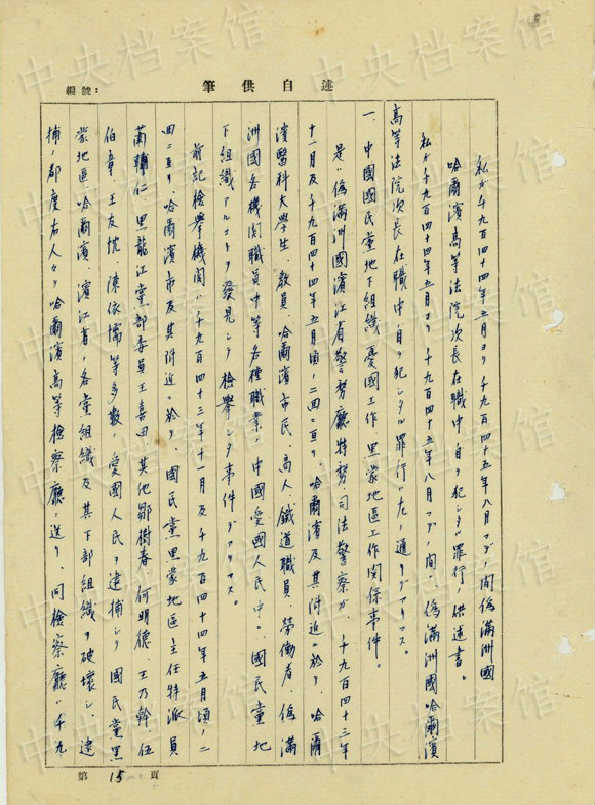 編號:
述自供筆
私ガ千九百四十四年五月ヨリ千九百四十五年八月マデノ間偽滿洲國
哈爾濱高等法院次長在職中自ラ犯シタル罪行ノ供述書。
私ガ千九百四十四年五月ヨリ千九百四十五年八月マデノ間、偽滿洲國哈爾濱
高等法院次長在職中自ラ犯シタル罪行ハ左ノ通リデアリマス。
一、中國國民党地下組織ノ憂國工作、黒蒙地區工作関係事件。
是ハ偽滿洲國濱江省警務廳特務司法警察ガ、千九百四十三年
十一月及千九百四十四年五月頃ノ二回ニ亘リ、哈爾濱及其附近ニ於テ、哈爾
濱醫科大學生、教員、哈爾濱市民、商人、鐵道職員、勞働者、偽滿
洲國各機関職員中等各種職業ノ中國愛國人民中ニ、國民党地
下組織アルコトヲ發見シテ檢舉シタ事件デアリマス。
前記檢舉機関ハ千九百四十三年十一月及千九百四十四年五月頃ノ二
回ニ亘リ、哈爾濱市及其附近ニ於テ、國民党黒蒙地區主任特派員
蘭轉仁、黒龍江党部委員王喜田、其他鄒樹春、何明德、王乃幹、伍
伯章、王友忱、陳依儒等多數ノ愛國人民ヲ逮捕シテ國民党黒
蒙地區、哈爾濱、濱江省ノ各党組織及其下部組織ヲ破壞シ、逮
捕ノ都度右人々ヲ哈爾濱高等檢察廳ニ送リ、同檢察廳ハ千九
第15頁
中央档案馆